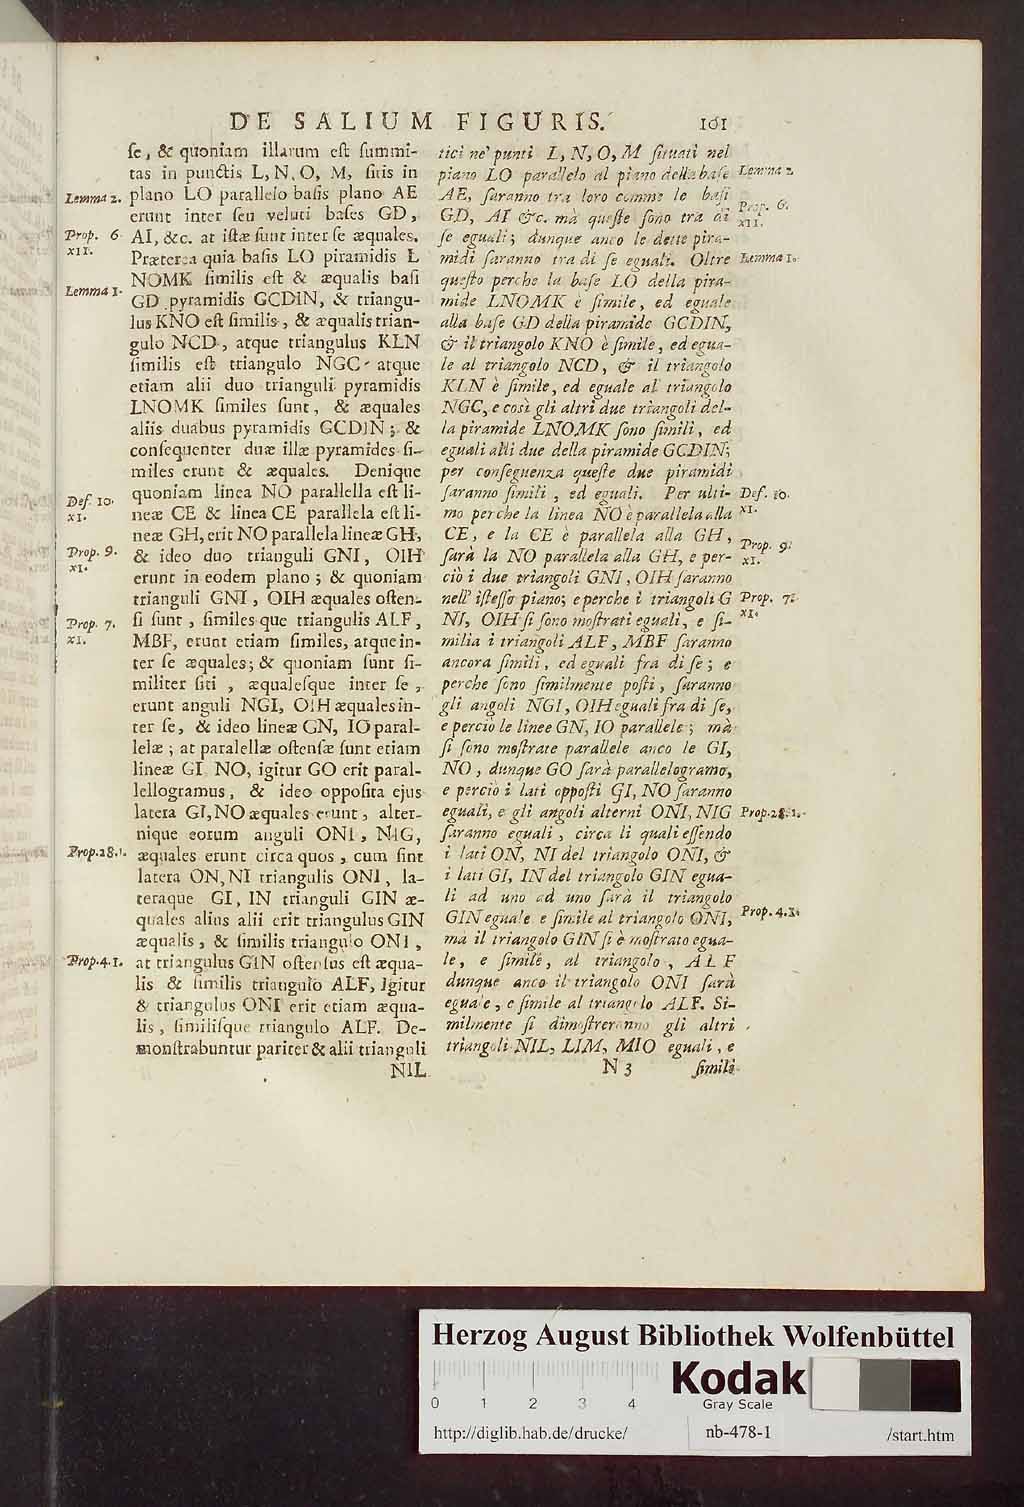 DE SALIUM FIGURIS. 161
se, & quoniam illarum est summi-
tas in punctis L, N, O, M, sitis in
plano LO parallelo basis plano AE
erunt inter seu veluti bases GD,
AI, &c. at istæ sunt inter se æquales.
Præterea quia basis LO piramidis L
NOMK similis est & æqualis basi
GD pyramidis GCDIN, & triangu-
lus KNO est similis, & æqualis trian-
gulo NCD, atque triangulus KLN
similis est triangulo NGC atque
etiam alii duo trianguli pyramidis
LNOMK similes sunt, & æquales
aliis duabus pyramidis GCDIN; &
consequenter duæ illæ pyramides si-
miles erunt & æquales. Denique
quoniam linea NO parallella est li-
neæ CE & linea CE parallela est li-
neæ GH, erit NO parallela lineæ GH,
& ideo duo trianguli GNI, OIH
erunt in eodem plano; & quoniam
trianguli GNI, OIH æquales osten-
si sunt, similes que triangulis ALF,
MBF, erunt etiam similes, atque in-
ter se æquales; & quoniam sunt si-
militer siti, æqualesque inter se,
erunt anguli NGI, OIH æquales in-
ter se, & ideo lineæ GN, IO paral-
lelæ; at paralellæ ostensæ sunt etiam
lineæ GI NO, igitur GO erit paral-
lellogramus, & ideo opposita ejus
latera GI, NO æquales erunt, alter-
nique eorum anguli ONI, NIG,
æquales erunt circa quos, cum sint
latera ON, NI triangulis ONI, la-
teraque GI, IN trianguli GIN æ-
quales alius alii erit triangulus GIN
æqualis, & similis triangulo ONI,
at triangulus GIN ostensus est æqua-
lis & similis triangulo ALF, Igitur
& triangulus ONI erit etiam æqua-
lis, similisque triangulo ALF. De-
monstrabuntur pariter & alii trianguli
NIL
Lemma 2.
Prop. 6
XII.
Lemma 1.
Def. 10.
XI.
Prop. 9.
XI.
Prop. 7.
XI.
Prop. 28. 1.
Prop. 4. 1.
tici ne' punti L, N, O, M situati nel
piano LO parallelo al piano della base
AE, saranno tra loro comme le basi
GD, AI &c. mà queste sono tra di
se eguali; dunque anco le dette pira-
midi saranno tra di se eguali. Oltre
questo perche la base LO della pira-
mide LNOMK è simile, ed eguale
alla base GD della piramide GCDIN,
& il triangolo KNO è simile, ed egua-
le al triangolo NCD, & il triangolo
KLN è simile, ed eguale al triangolo
NGC, e così gli altri due triangoli del-
la piramide LNOMK sono simili, ed
eguali alli due della piramide GCDIN;
per conseguenza queste due piramidi
saranno simili, ed eguali. Per ulti-
mo perche la linea NO è parallela alla
CE, e la CE è parallela alla GH,
sarà la NO parallela alla GH, e per-
ciò i due triangoli GNI, OIH saranno
nell' istesso piano; e perche i triangoli G
NI, OIH si sono mostrati eguali, e si-
milia i triangoli ALF, MBF saranno
ancora simili, ed eguali fra di se; e
perche sono similmente posti, saranno
gli angoli NGI, OIH eguali fra di se,
e perciò le linee GN, IO parallele; mà
si sono mostrate parallele anco le GI,
NO, dunque GO sarà parallelogramo,
e perciò i lati opposti GI, NO saranno
eguali, e gli angoli alterni ONI, NIG
saranno eguali, circa li quali essendo
i lati ON, NI del triangolo ONI, &
i lati GI, IN del triangolo GIN egua-
li ad uno ad uno sarà il triangolo
GIN eguale e simile al triangolo ONI,
ma il triangolo GIN si è mostrato egua-
le, e simile, al triangolo, ALF
dunque anco il triangolo ONI sarà
eguale, e simile al triangolo ALF. Si-
milmente si dimostreranno gli altri
triangoli NIL, LIM, MIO eguali, e
N 3 simili
Lemma 2.
Prop. 6.
XII.
Lemma 1.
Def. 10.
XI.
Prop. 9.
XI.
Prop. 7.
XI.
Prop. 28. 1.
Prop. 4. 1.
Herzog August Bibliothek Wolfenbüttel
0 1 2 3 4
Kodak
Gray Scale
http://diglib.hab.de/drucke/ nb-478-1 /start.htm